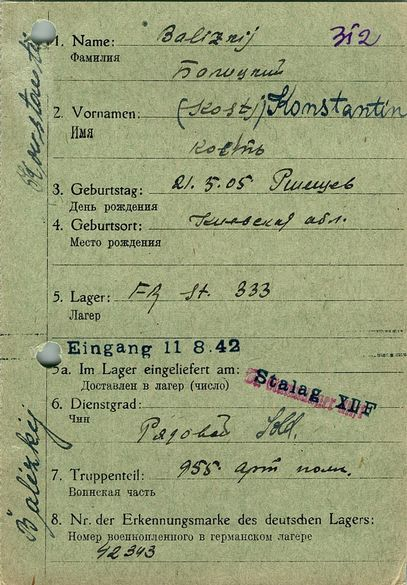 1. Name: Baliznij 312
Фамилия
2. Vornamen: (Kostj) Konstantin
Имя
Кость
3. Geburtstag: 21. 5. 05
День рождения
4. Geburtsort: Киевская обл.
Место рождения
5. Lager: St. 333
Лагер
Eingang 11 8.42
5a. Im Lager eingeliefert am: Stalag
Доставлен в лагер (число)
6. Dienstgrad:
Чин
Рядовой
7. Truppenteil: 955 арт полк.
Воинская часть
8. Nr. der Erkennungsmarke des deutschen Lagers:
Номер военнопленного в германском лагере
42343
Konstantin
Balizkij